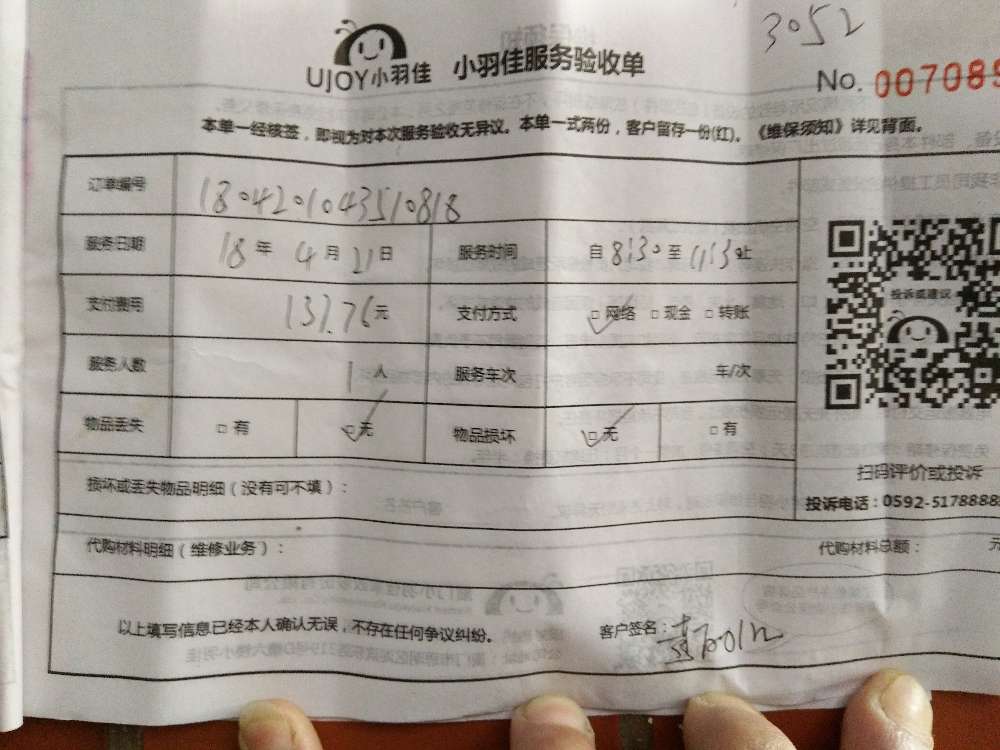 3052
UJOY小羽佳 小羽佳服务验收单
No. 007089
本单一经核签，即视为对本次服务验收无异议。本单一式两份，客户留存一份(红)。《维保须知》详见背面。
订单编号 1804201043510818
服务日期 18年 4月 21日 服务时间 自8:30至11:30止
支付费用 137.76元 支付方式 □网络 □现金 □转账
投诉或建议
服务人数 1人 服务车次 车/次
物品丢失 □有 □无 物品损坏 □无 □有
扫码评价或投诉
损坏或丢失物品明细（没有可不填）：
投诉电话：0592-5178888
代购材料明细（维修业务）： 代购材料总额： 元
以上填写信息已经本人确认无误，不存在任何争议纠纷。 客户签名：